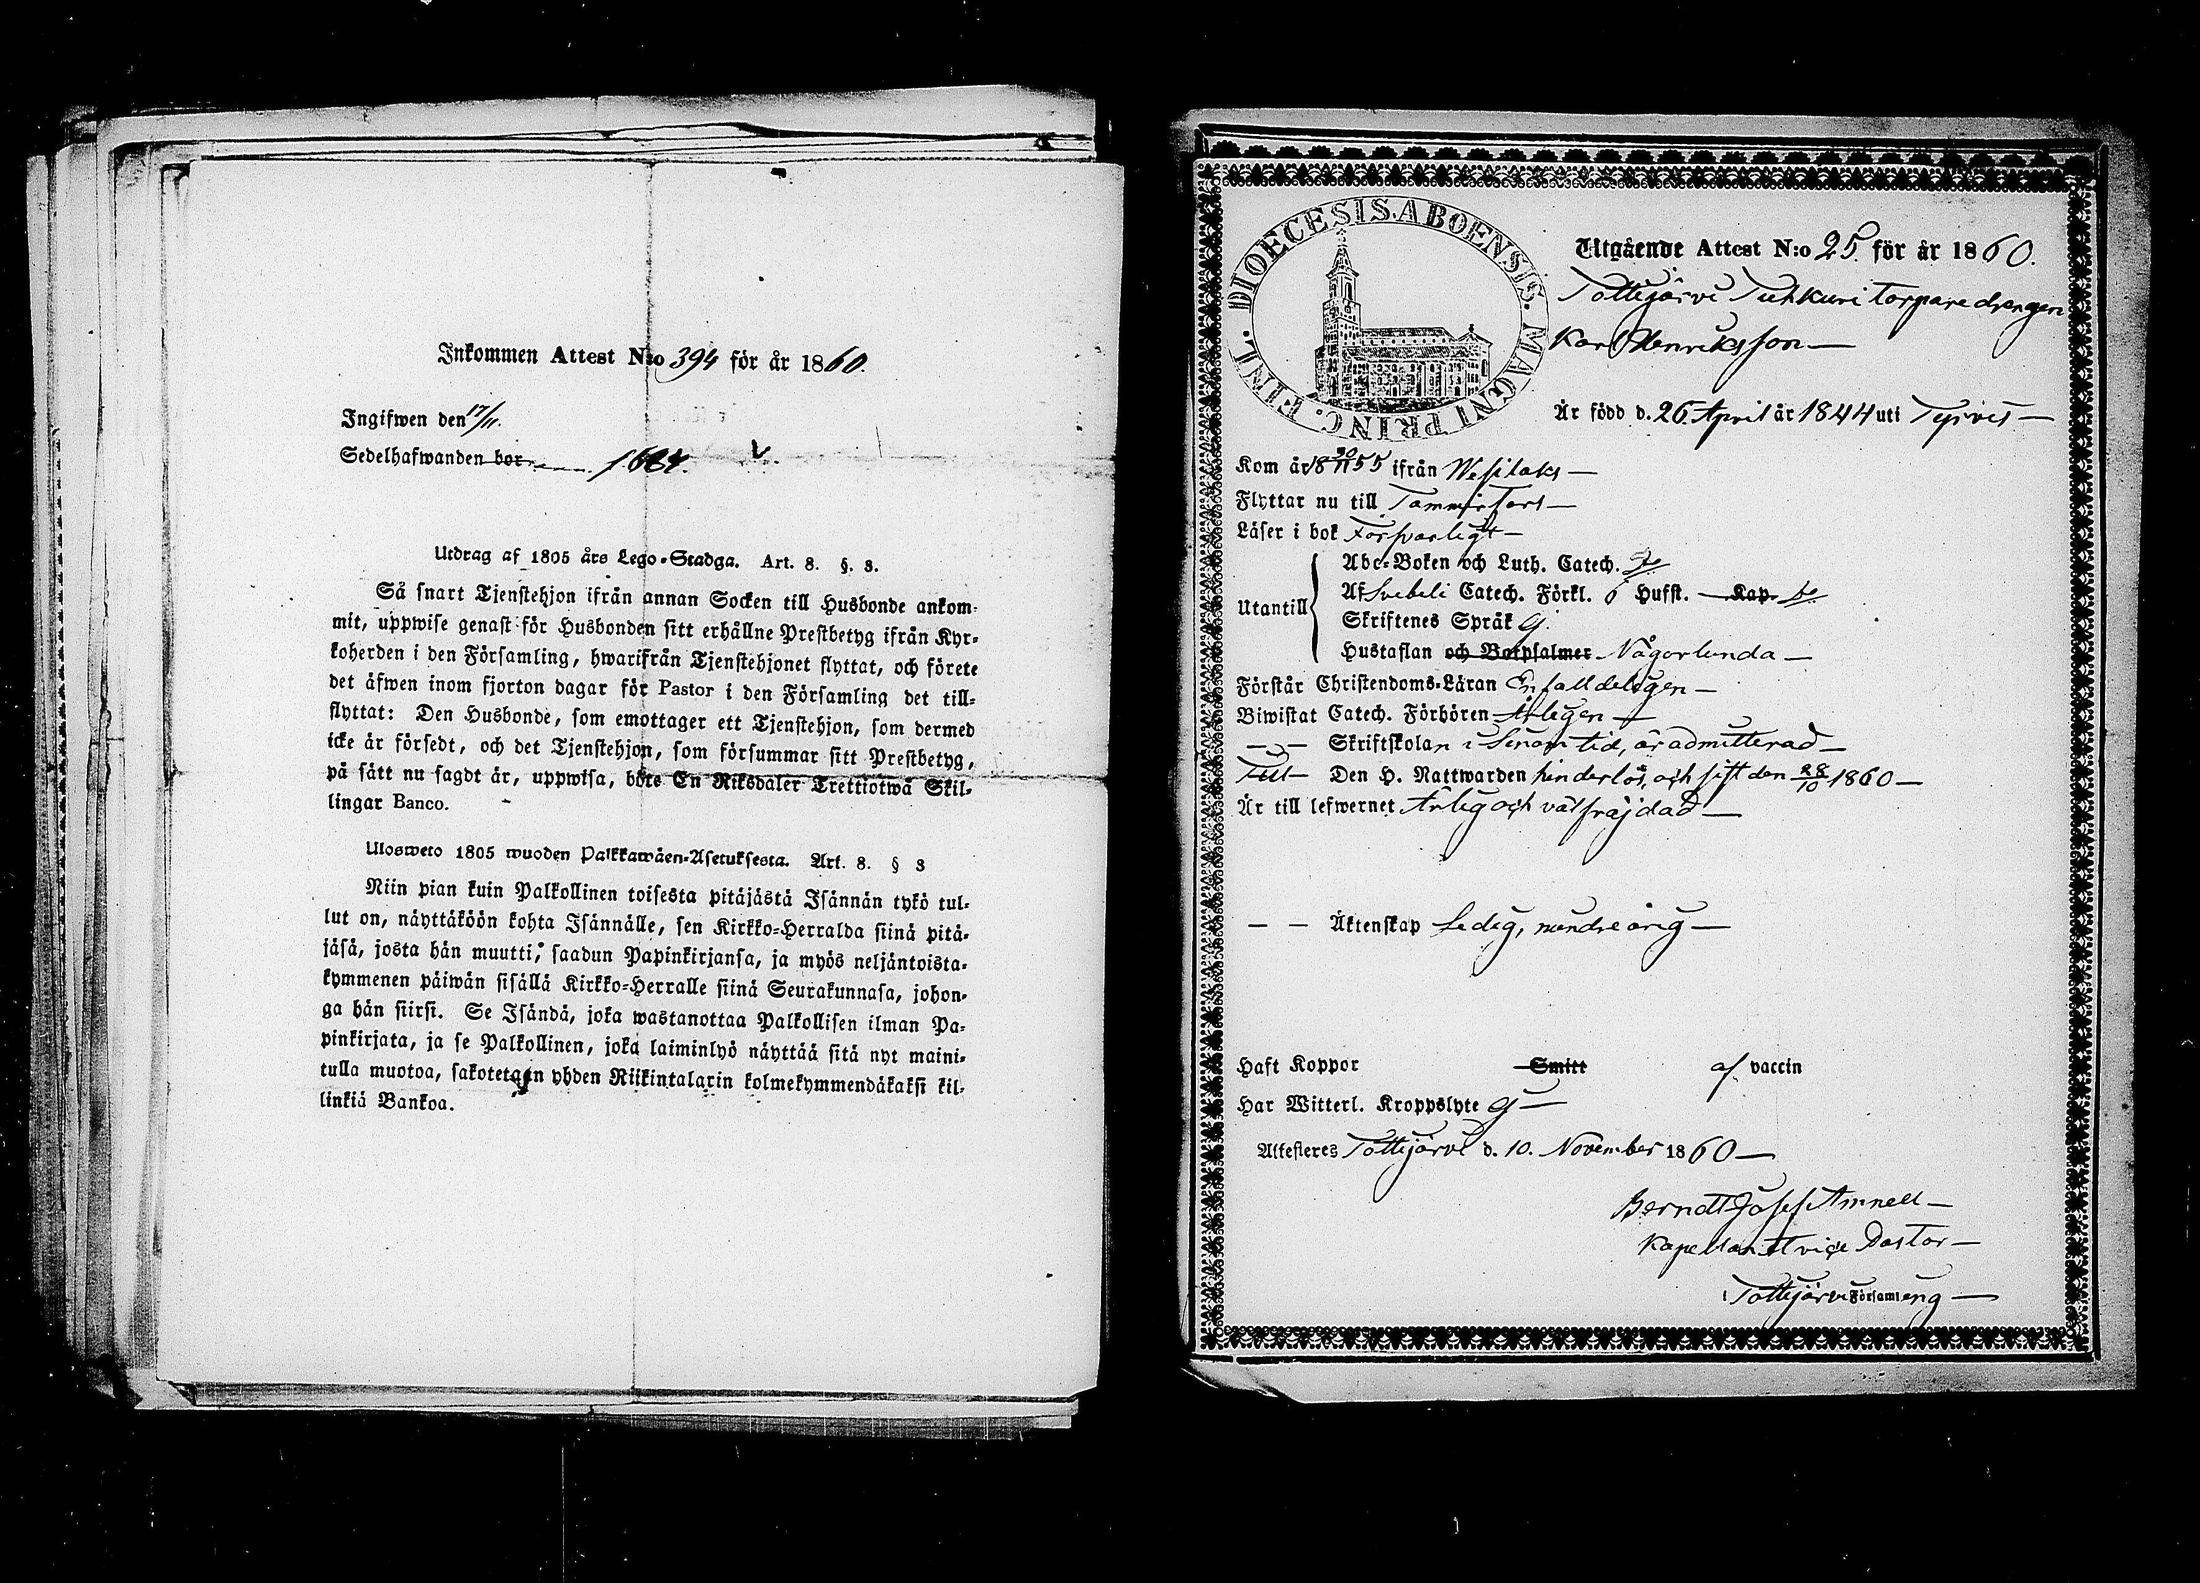 Inkommen Attest N:o 394 för år 1860.
Ingifwen den 17/11.
Sedelhafwanden bor 1684.
Utdrag af 1805 års Lego-Stadga. Art. 8. §. 3.
Så snart Tjenstehjon ifrån annan Socken till Husbonde ankom-
mit, uppwise genast för Husbonden sitt erhållne Prestbetyg ifrån Kyr-
koherden i den Församling, hwarifrån Tjenstehjonet flyttat, och förete
det äfwen inom fjorton dagar för Pastor i den Församling det till-
flyttat: Den Husbonde, som emottager ett Tjenstehjon, som dermed
icke är försedt, och det Tjenstehjon, som försummar sitt Prestbetyg,
på sätt nu sagdt är, uppwisa, böte En Riksdaler Trettiotwå Skil-
lingar Banco.
Ulosweto 1805 wuoden Palkkawäen-Asetuksesta. Art. 8. § 3
Niin pian kuin Palkollinen toisesta pitäjästä Isännän tykö tul-
lut on, näyttäköön kohta Isännälle, sen Kirkko-Herralda siinä pitä-
jäsä, josta hän muutti, saadun Papinkirjansa, ja myös neljäntoista-
kymmenen päiwän sisällä Kirkko-Herralle siinä Seurakunnasa, johon-
ga hän siirsi. Se Isändä, joka wastanottaa Palkollisen ilman Pa-
pinkirjata, ja se Palkollinen, joka laiminlyö näyttää sitä nyt maini-
tulla muotoa, sakotetaan yhden Riikintalarin kolmekymmendäkaksi kil-
linkiä Bankoa.
DIOECESIS. ABOENSIS. MAGNI PRINC. FINL.
Utgående Attest N:o 25. för år 1860.
Tottijärvi Tuhkuri Torpare drängen
Karl Henriksson
Är född d. 26 April år 1844 uti Tyrvis
Kom år 18 30/11 55 ifrån Wesilaks
Flyttar nu till Tammerfors
Läser i bok Försvarligt
Utantill
Abc-Boken och Luth. Catech.
Af Svebeli Catech. Förkl. 6 Hufst. Kap.
Skriftenes Språk Ej.
Hustaflan och Botpsalmer Någorlunda
Förstår Christendoms-Läran Enfalldeligen
Biwistat Catech. Förhören Årligen
— — Skriftskolan i sinom tid, är admitterad
Till Den H. Nattwarden hinderlös, och sist den 28/10 1860
Är till lefwernet Ärlig och välfräjdad
— — Äktenskap Ledig, mindreårig
Haft Koppor Smitt af vaccin
Har Witterl. Kroppslyte Ej
Attesteres Tottijärvi d. 10. November 1860
Berndt Josef Amnell
Kapellan et vice Pastor
i Tottijärvi Församling